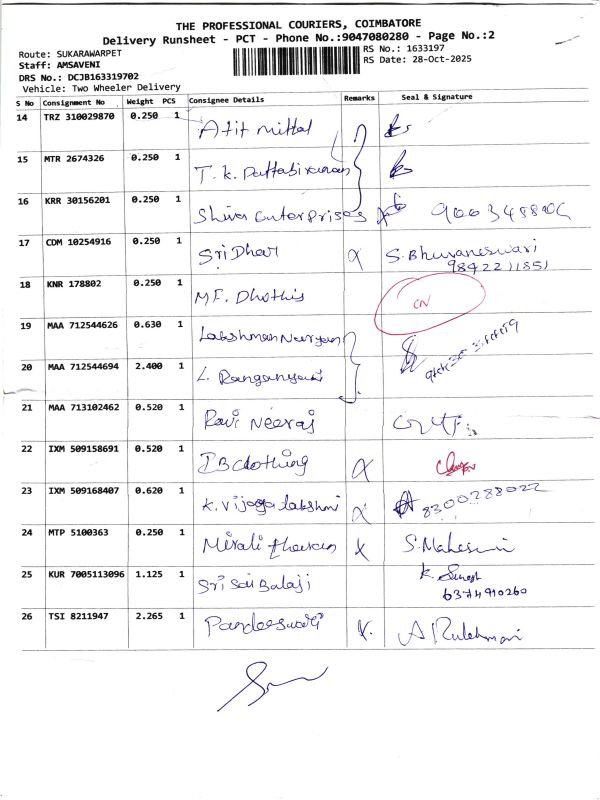 THE PROFESSIONAL COURIERS, COIMBATORE
Delivery Runsheet - PCT - Phone No.:9047080280 - Page No.:2
Route: SUKARAWARPET
RS No.: 1633197
Staff: AMSAVENI
RS Date: 28-Oct-2025
DRS No.: DCJB163319702
Vehicle: Two Wheeler Delivery
S No Consignment No Weight PCS Consignee Details Remarks Seal & Signature
14 TRZ 310029870 0.250 1 Mittal
15 MTR 2674326 0.250 1 T.K.
16 KRR 30156201 0.250 1 Shiva enterprises
17 CDM 10254916 0.250 1 SriDhar S. Bhuvaneswari
9842211851
18 KNR 178802 0.250 1 M.F. Dhothis CN
19 MAA 712544626 0.630 1
20 MAA 712544694 2.400 1 L.
21 MAA 713102462 0.520 1 Ravi Neeraj
22 IXM 509158691 0.520 1 IB clothing
23 IXM 509168407 0.620 1 K. vijaya lakshmi 8300288022
24 MTP 5100363 0.250 1
25 KUR 7005113096 1.125 1 Sri Sai Balaji K. Suresh
6374910260
26 TSI 8211947 2.265 1 Pandeeswari